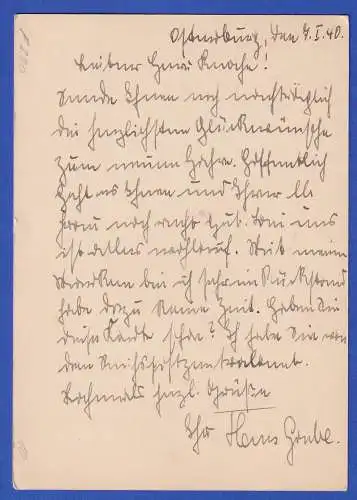 Osterburg, den 4.I.40.
Lieber Herr Knoche!
Sende Ihnen noch nachträglich
die herzlichsten Glückwünsche
zum neuen Jahre. Hoffentlich
geht es Ihnen und Ihrer lb
Frau noch recht gut. Bei uns
ist alles wohlauf. Mit meinen
Marken bin ich sehr im Rückstand
habe dazu keine Zeit. Haben Sie
diese Karte schon? Ich habe Sie von
dem Reichspostzentralamt.
Nochmals herzl. Grüße
Ihr Hans Grube.